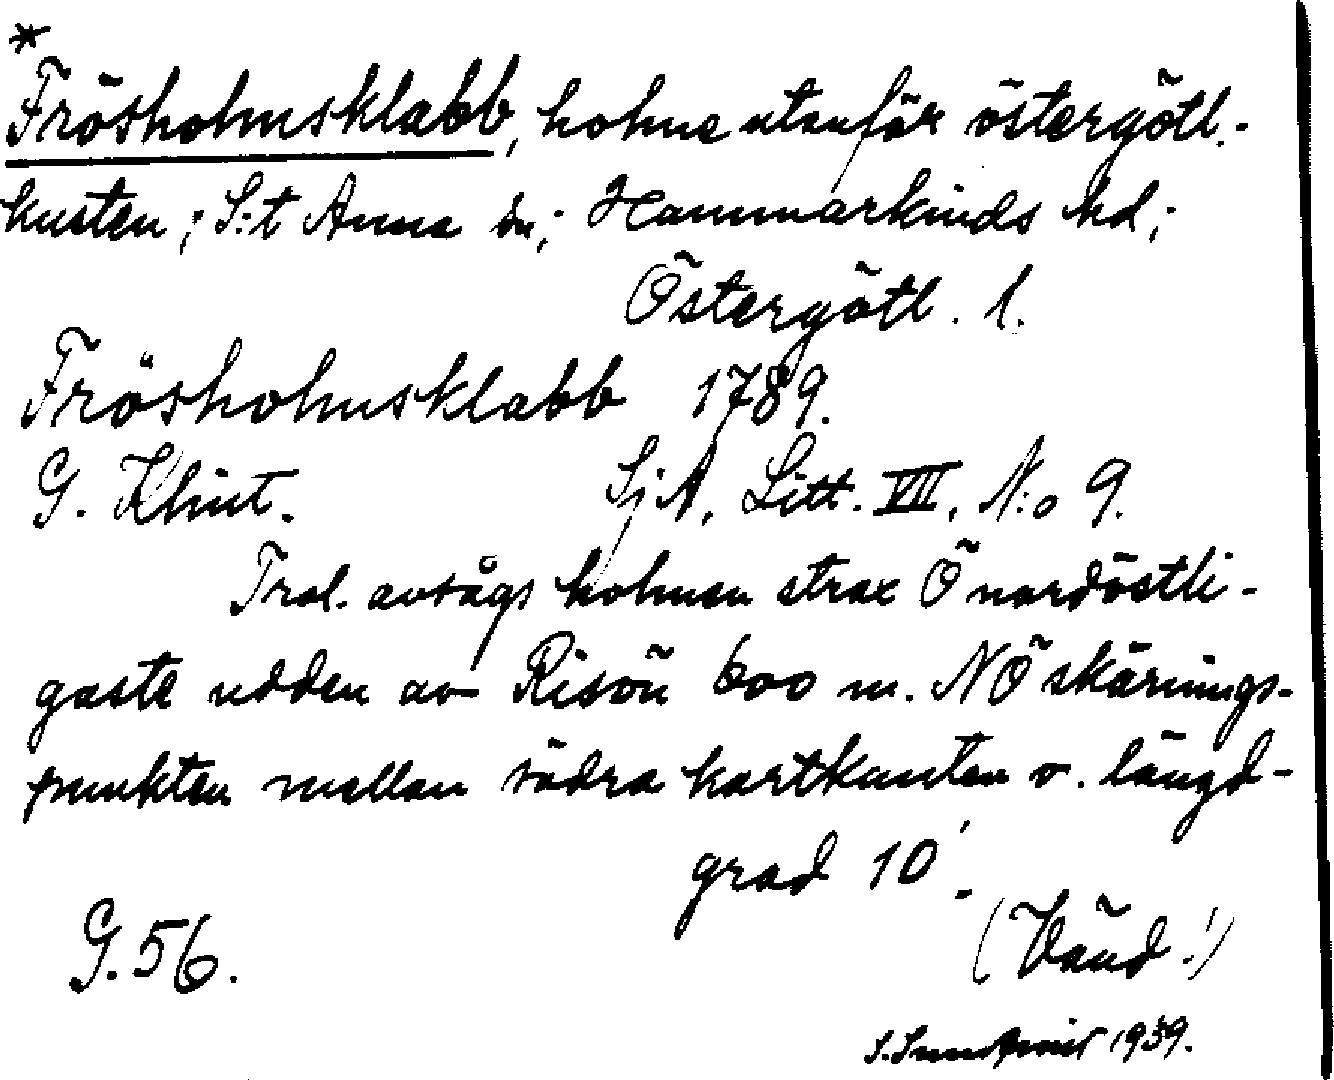 *
Frösholmsklabb, holme utanför östergötl.-
kusten; S:t Anna sn; Hammarkinds hd;
Östergötl. l.
Frösholmsklabb 1789.
G. Klint. SjA, Litt. VII, N:o 9.
Trol. avsågs holmen strax Ö nordöstli-
gaste udden av Risön 600 m. NÖ skärnings-
punkten mellan södra kartkanten o. längd-
grad 10'.
G. 56. (Vänd!)
S. 1939.